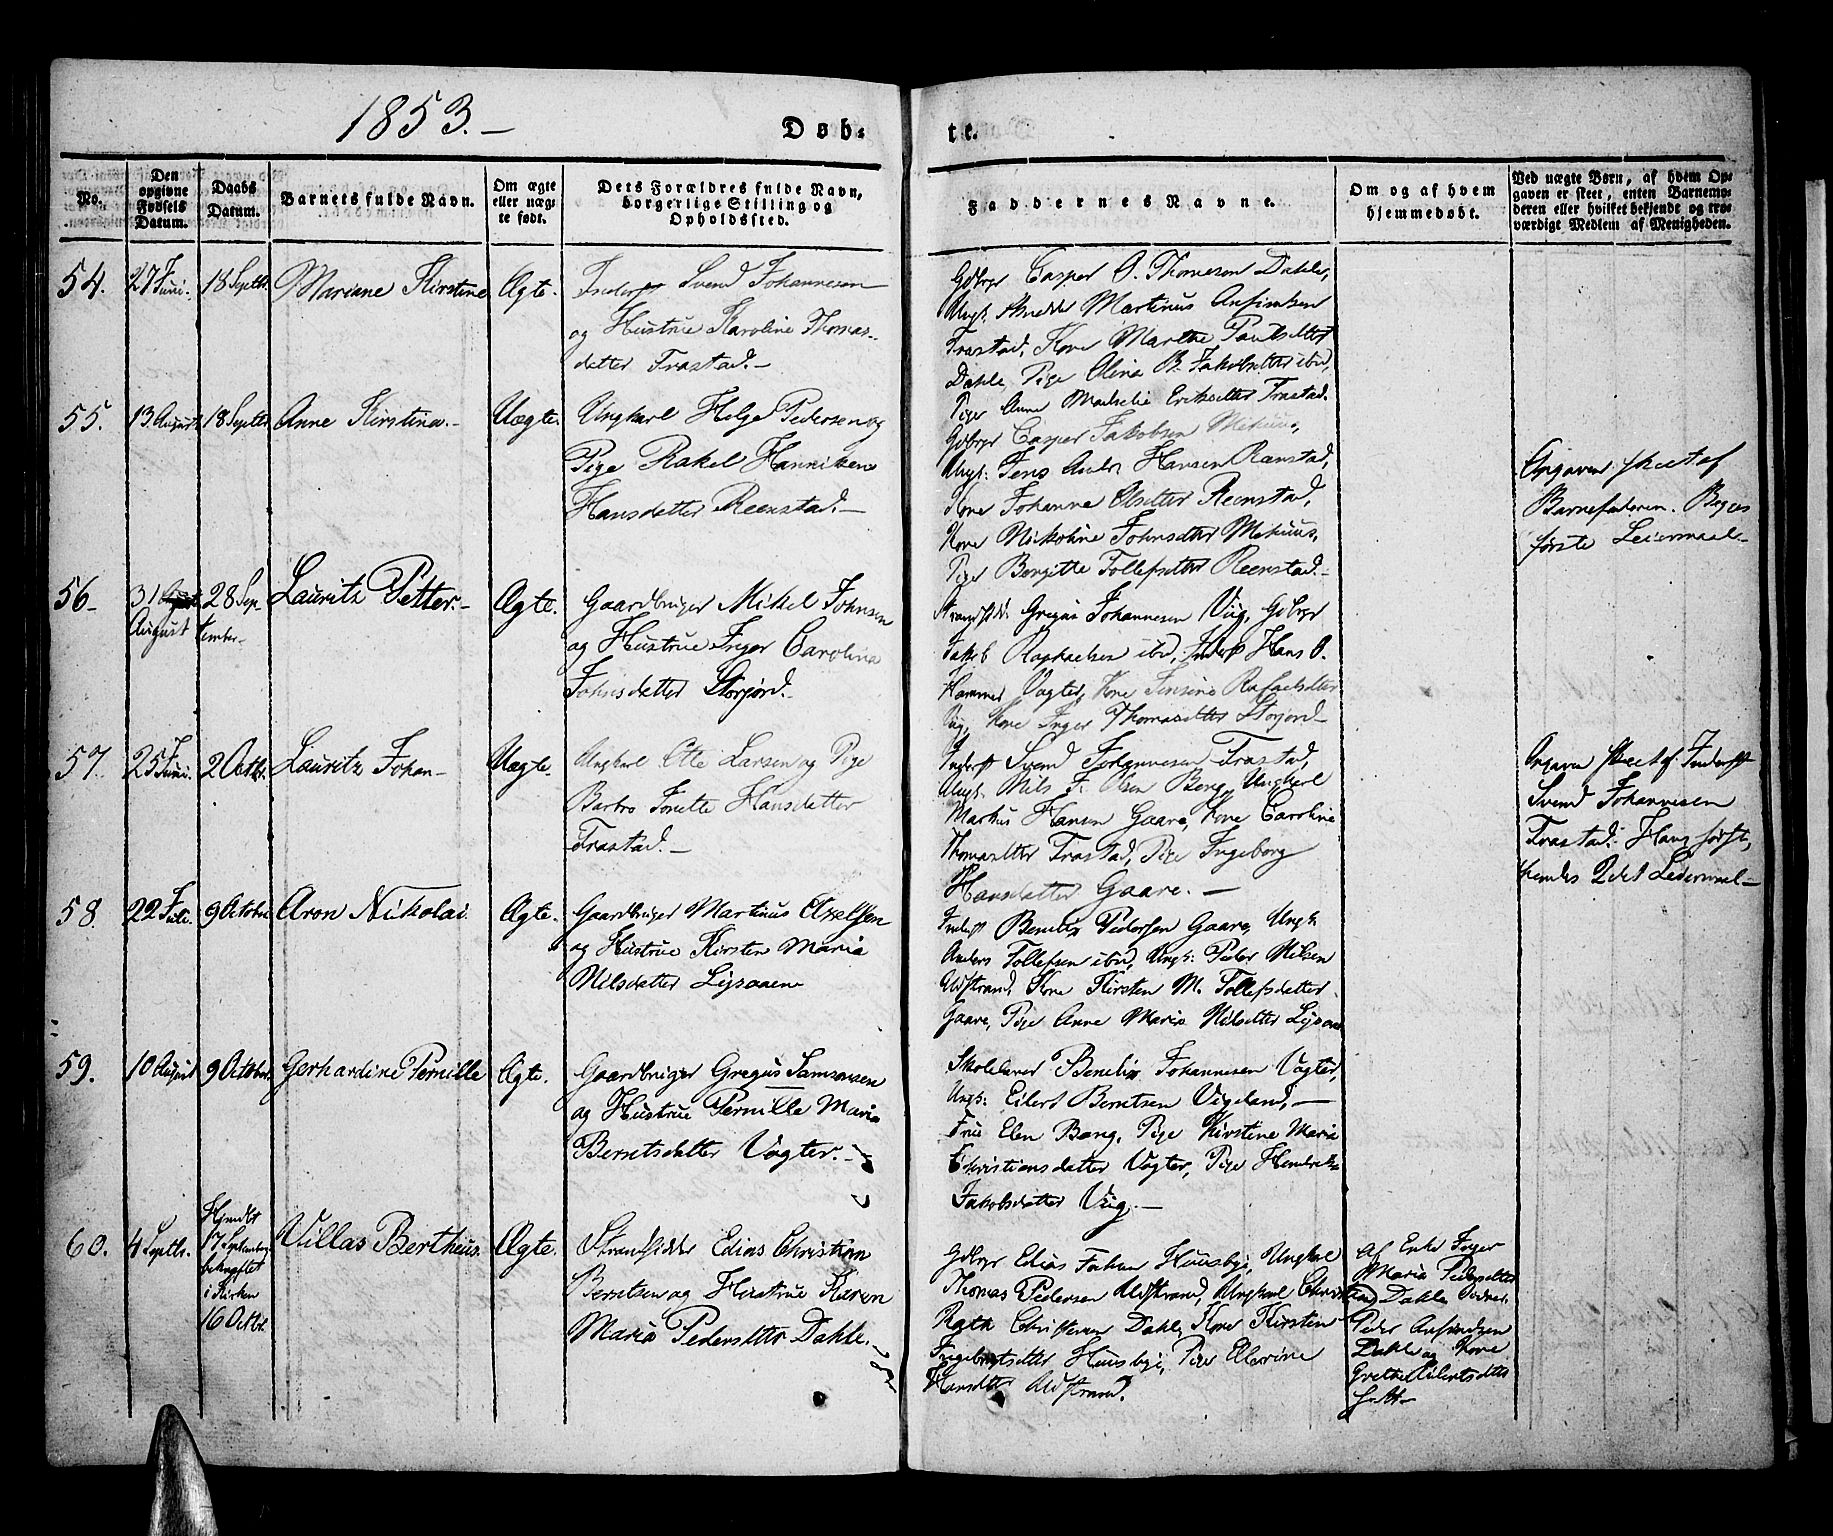 1853.–
Døb-
te.
No.
Den opgivne Fødsels Datum.
Daabs Datum.
Barnets fulde Navn.
Om ægte eller uægte født.
Dets Forældres fulde Navn, borgerlige Stilling og Opholdssted.
Faddernes Navne.
Om og af hvem hjemmedøbt.
Ved uægte Børn, af hvem Opgaven er skeet, enten Barnemoderen eller hvilket bekjendt og troværdigt Medlem af Menigheden.
54. 27 Juni. 18 Septbr. Mariane Kirstine Ægte.
Inderst Svend Johannesen
og Hustrue Karoline Thomas-
datter Trastad.–
Gdbrgr Casper O. Thomesen Dahle,
Ungk. Martinus Anfindsen
Trastad, Kone Marthe Paulsdtter
Dahle, Pige Olina B. Jakobsdtter ibd,
Pige Anne Eriksdtter Trastad.
55. 13 August 18 Septbr. Anne Kirstina.– Uægte.
Ungkarl Helge Pedersen og
Pige Rakel Hannikene
Hansdatter Reenstad.–
Gdbrgr Casper Jakobsen
Ungk. Jens Hansen Reenstad,
Kone Johanne Olsdtter Reenstad,
Kone Nikoline Johnsdtter
Pige Bergitte Tollefsdtter Reenstad.–
Opgaven skeet af
Barnefaderen. Begges
første Leiermaal–
56– 31 August 28 September– Lauritz Petter.– Ægte.
Gaardbruger Mikel Johnsen
og Hustrue Inger Carolina
Johnsdatter Storjord.
Strandsidder Gregus Johannesen Viig, Gdbrgr
Jakob Raphaelsen ibd, Inderst Hans O.
Hammer Vagter, Kone Jensine Rafaelsdtter
Viig, Kone Inger Thomasdtter Storjord–
57. 25 Juni. 2 Octbr. Lauritz Johan– Uægte.
Ungkarl Otte Larsen og Pige
Barbro Jonette Hansdatter
Trastad.–
Inderst Svend Johannesen Trastad,
Ungk. Nils F. Olsen Berg, Ungkarl
Markus Hansen Gaare, Kone Caroline
Thomasdtter Trastad, Pige Ingeborg
Hansdatter Gaare.–
Opgaven skeet af Inderst
Svend Johannesen
Trastad. Hans første,
hendes 2det Leiermaal–
58. 22 Juli. 9 October Aron Nikolai. Ægte.
Gaardbruger Martinus Axelsen
og Hustrue Kirsten Maria
Nilsdatter Lysaaen
Inderst Benedix Pedersen Gaare, Ungk:
Anders Tollefsen ibd, Ungk: Peder Nilsen
Kone Kirsten M. Tollefsdatter
Gaare, Pige Anne Maria Nilsdtter Lysaaen
59. 10 August 9 October Gerhardine Pernille Ægte.
Gaardbruger Gregus Samsonsen
og Hustrue Pernille Maria
Berntsdatter Vagter.–
Skolelærer Benedix Johannesen Vagter,
Ungk: Eilert Berntsen Vigeland,–
Frue Elen Bang, Pige Kirstine Maria
Christiansdatter Vagter, Pige Hendrikke
Jakobsdatter Viig.–
60. 4 Septbr. Hjemdbt 17 September bekræftet i Kirken 16 Octbr. Villas Bertheus. Ægte.
Strandsidder Edias Christian
Berntsen og Hustrue Karen
Maria Pedersdtter Dahle.–
Gdbrgr Edias Johan Huusby, Ungkal
Thomas Pedersen Ungkarl Christian
Christensen Dahle, Kone Kirsten
Ingebrigtsdtter Huusby, Pige Ellerine
Hansdtter
Af Enke Inger
Maria Pedersdtter
Dahle
Peder Anfindsen
Dahle og Kone
Grethe Eilertsdtter